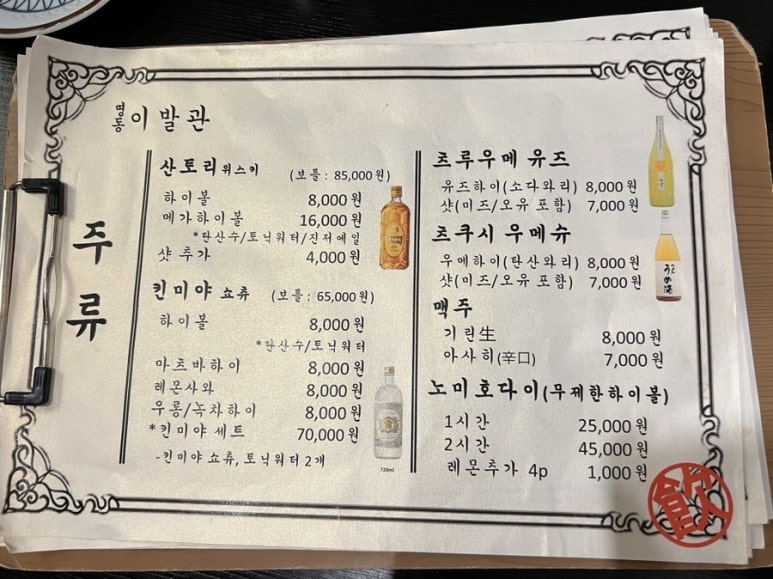 명동 이발관
주류
산토리 위스키 (보틀 : 85,000원)
하이볼 8,000원
메가하이볼 16,000원
*탄산수/토닉워터/진저에일
샷 추가 4,000원
킨미야 쇼츄 (보틀 : 65,000원)
하이볼 8,000원
*탄산수/토닉워터
마츠바하이 8,000원
레몬사와 8,000원
우롱/녹차하이 8,000원
*킨미야 세트 70,000원
-킨미야 쇼츄, 토닉워터 2개
720ml
츠루우메 유즈
유즈하이(소다와리) 8,000원
샷(미즈/오유 포함) 7,000원
츠쿠시 우메슈
우메하이(탄산와리) 8,000원
샷(미즈/오유 포함) 7,000원
맥주
기린生 8,000원
아사히(辛口) 7,000원
노미호다이(무제한하이볼)
1시간 25,000원
2시간 45,000원
레몬추가 4p 1,000원
飮